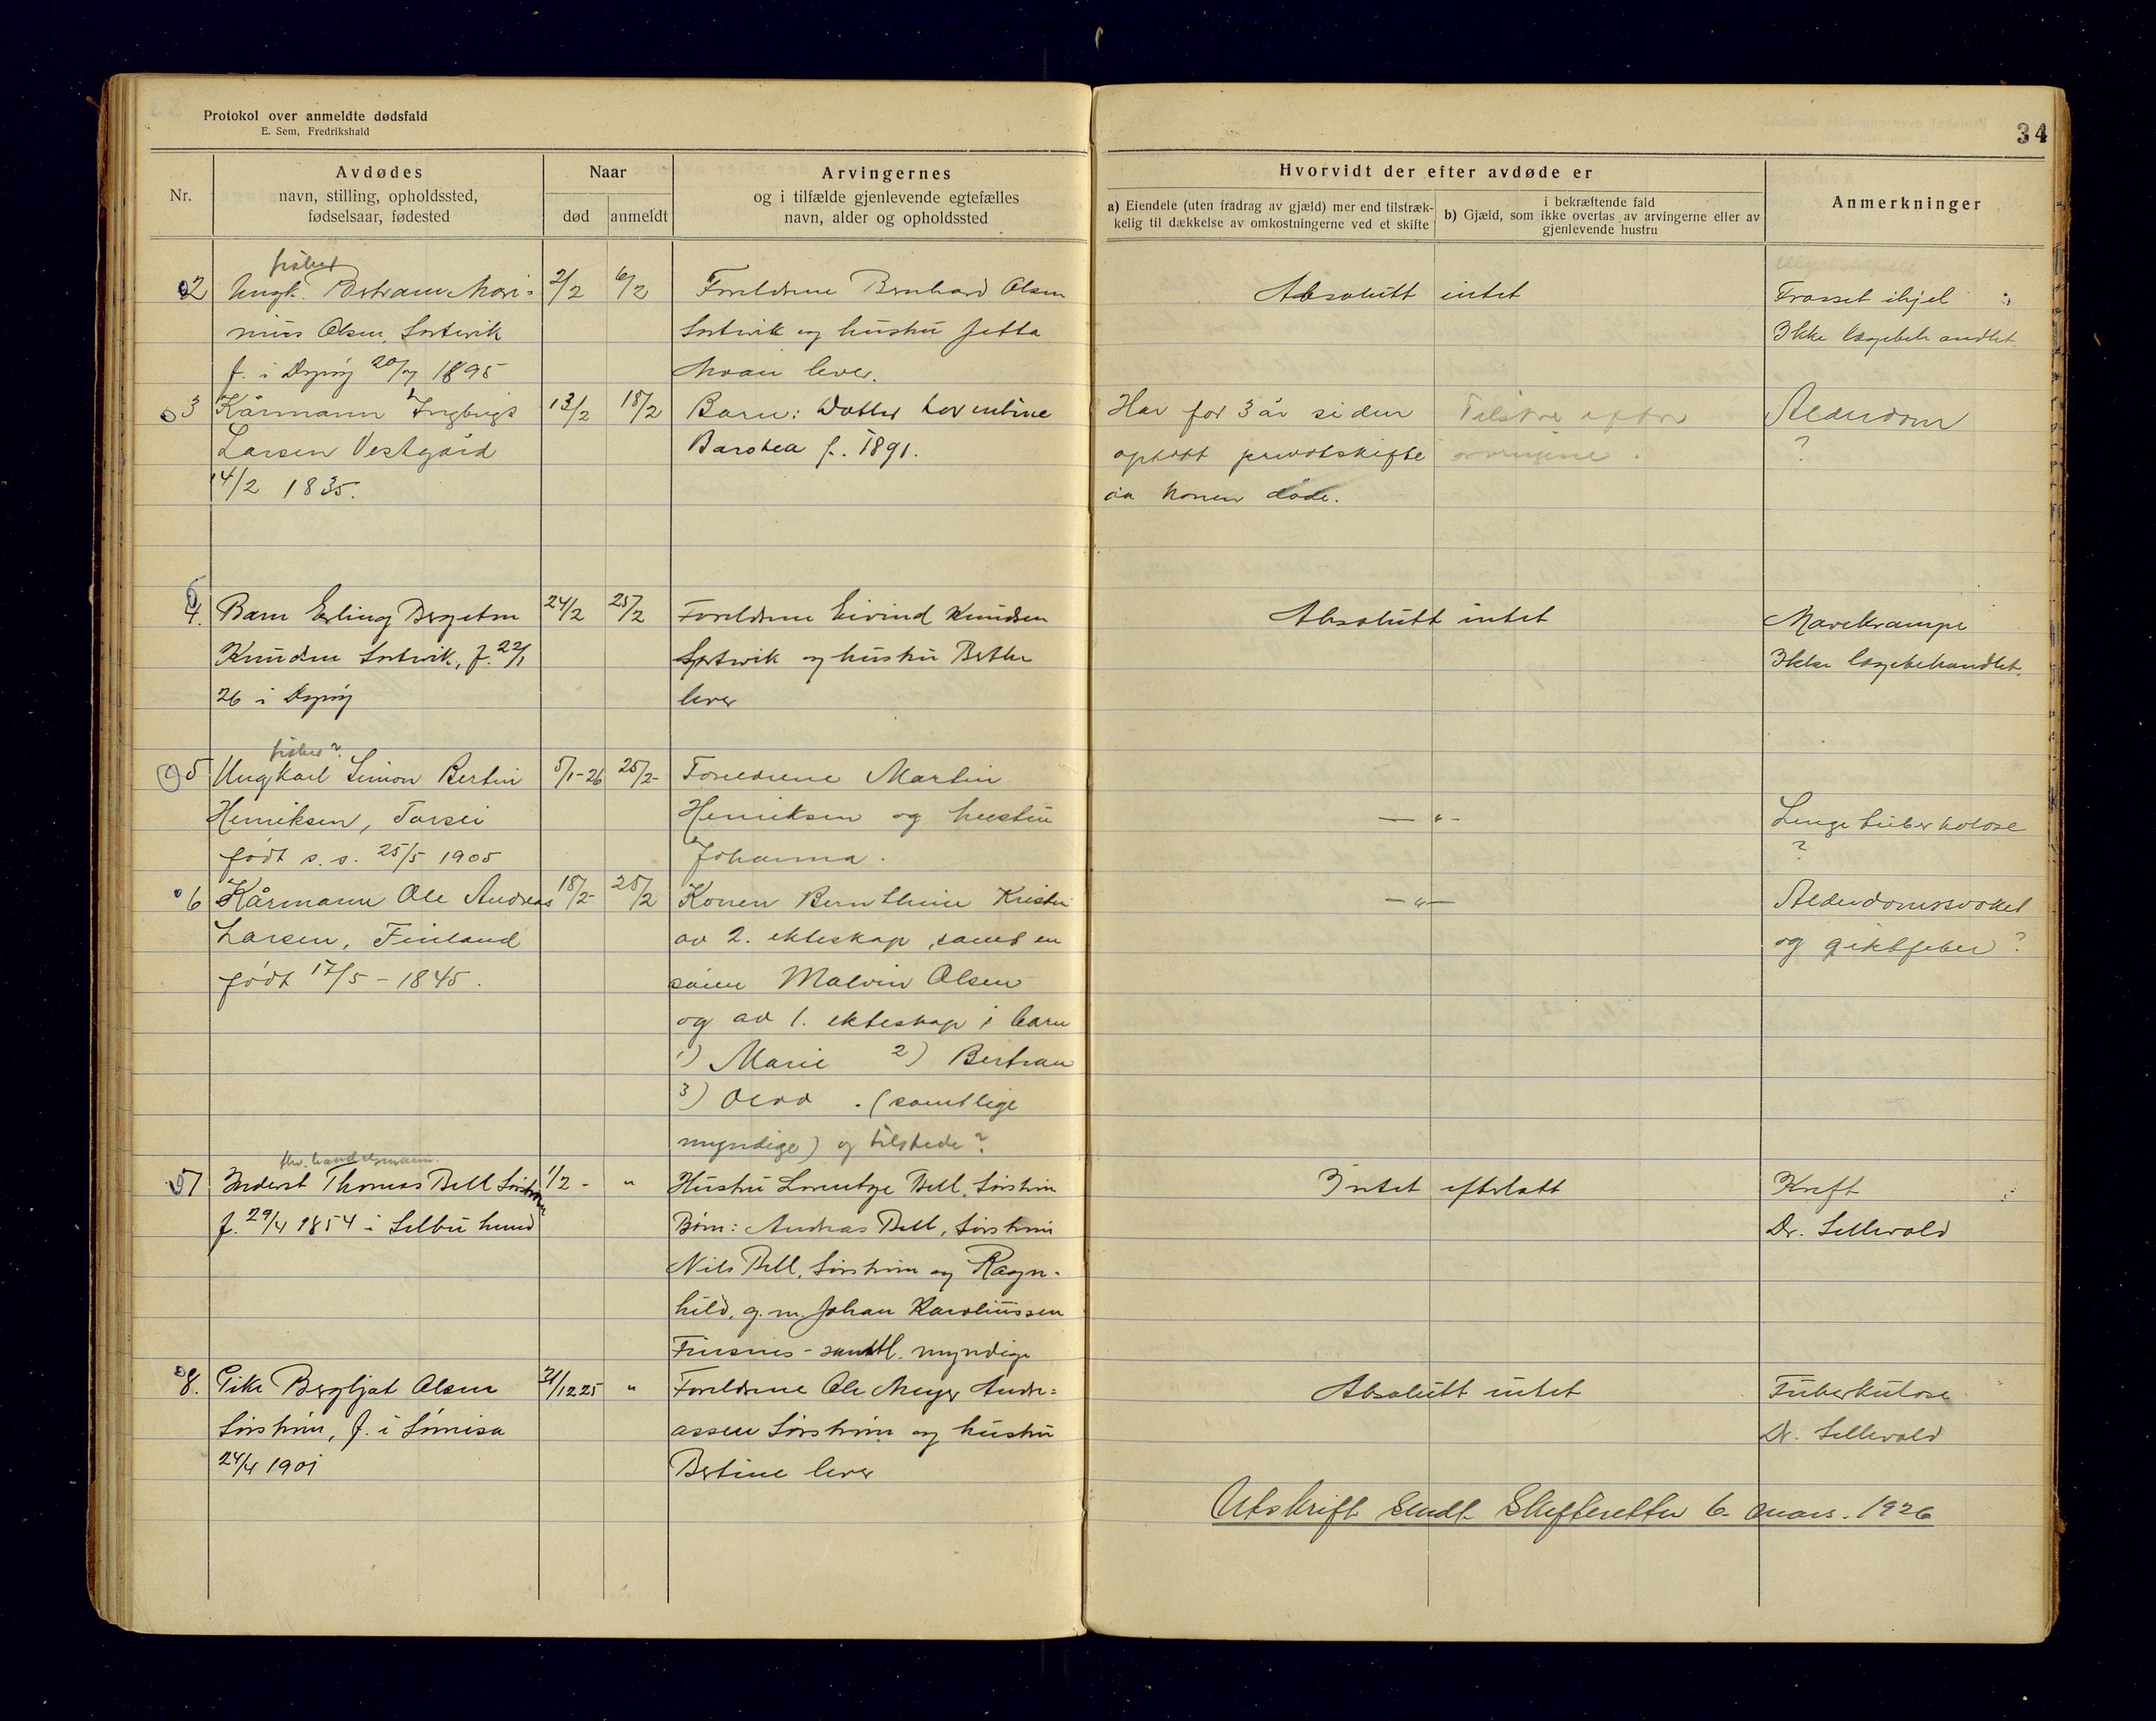 Protokol over anmeldte dødsfald
E. Sem, Fredrikshald
34
Nr.
Avdødes
navn, stilling, opholdssted,
fødselsaar, fødested
Naar
død
anmeldt
Arvingernes
og i tilfælde gjenlevende egtefælles
navn, alder og opholdssted
Hvorvidt der efter avdøde er
a) Eiendele (uten fradrag av gjæld) mer end tilstræk-
kelig til dækkelse av omkostningerne ved et skifte
i bekræftende fald
b) Gjæld, som ikke overtas av arvingerne eller av
gjenlevende hustru
Anmerkninger
fisker
2 Ungk. Bertram Mari- 2/2 6/2 Foreldrene Bernhard Olsen Absolutt intet Frosset ihjel
nius Olsen, Sortvik Sortvik og hustru Jetta Ikke lægebehandlet.
f. i Dyrøy 20/7 1895 lever.
3 Kårmann Ingbrigt 13/2 18/2 Barn: Datter Har for 3 år siden Alderdom
Larsen Vestgård f. 1891. privatskifte ?
14/2 1835. konen døde.
4. Barn Erling Bergeton 24/2 25/2 Foreldrene Eivind Knudsen Absolutt intet Mavekrampe
Knudsen Sortvik, f. 22/1 Sortvik og hustru Ikke lægebehandlet.
26 i Dyrøy lever
fisker?
5 Ungkarl Simon Bertin 5/1-26 25/2- Foreldrene Martin
Henriksen, Henriksen og hustru — " - Lunge tuberkolose
født s. s. 25/5 1905 Johanna. ?
6 Kårmann Ole Andreas 18/2- 25/2 Konen Bernthine Kristin — " — Alderdomssvækket
Larsen, Finland av 2. ekteskap, samt en og giktfeber ?
født 17/5 - 1845. sønn Malvin Olsen
og av 1. ekteskap barn
1) Marie 2) Bertran
3) (samtlige
myndige) og tilstede?
fhv. handelsmann.
7 Inderst Thomas Bell Sørstrøm 1/2 - " Hustru Lorentze Bell, Sørstrøm Intet efterlatt Kreft
f. 29/4 1854 i Selbu Børn: Andreas Bell, Sørstrøm Dr. Sellevold
Nils Bell, Sørstrøm og Ragn-
hild, g. m. Johan Karoliussen
Finsnes - samtl. myndige
8. Pike Bergljot Olsen 21/12 25 " Foreldrene Ole Meyer Andre- Absolutt intet Tuberkulose
Sørstrøm, f. i Sørreisa assen Sørstrøm og hustru Dr. Sellevold
24/4 1901 Bertine lever
Utskrift sendt Skifteretten 6. mars. 1926